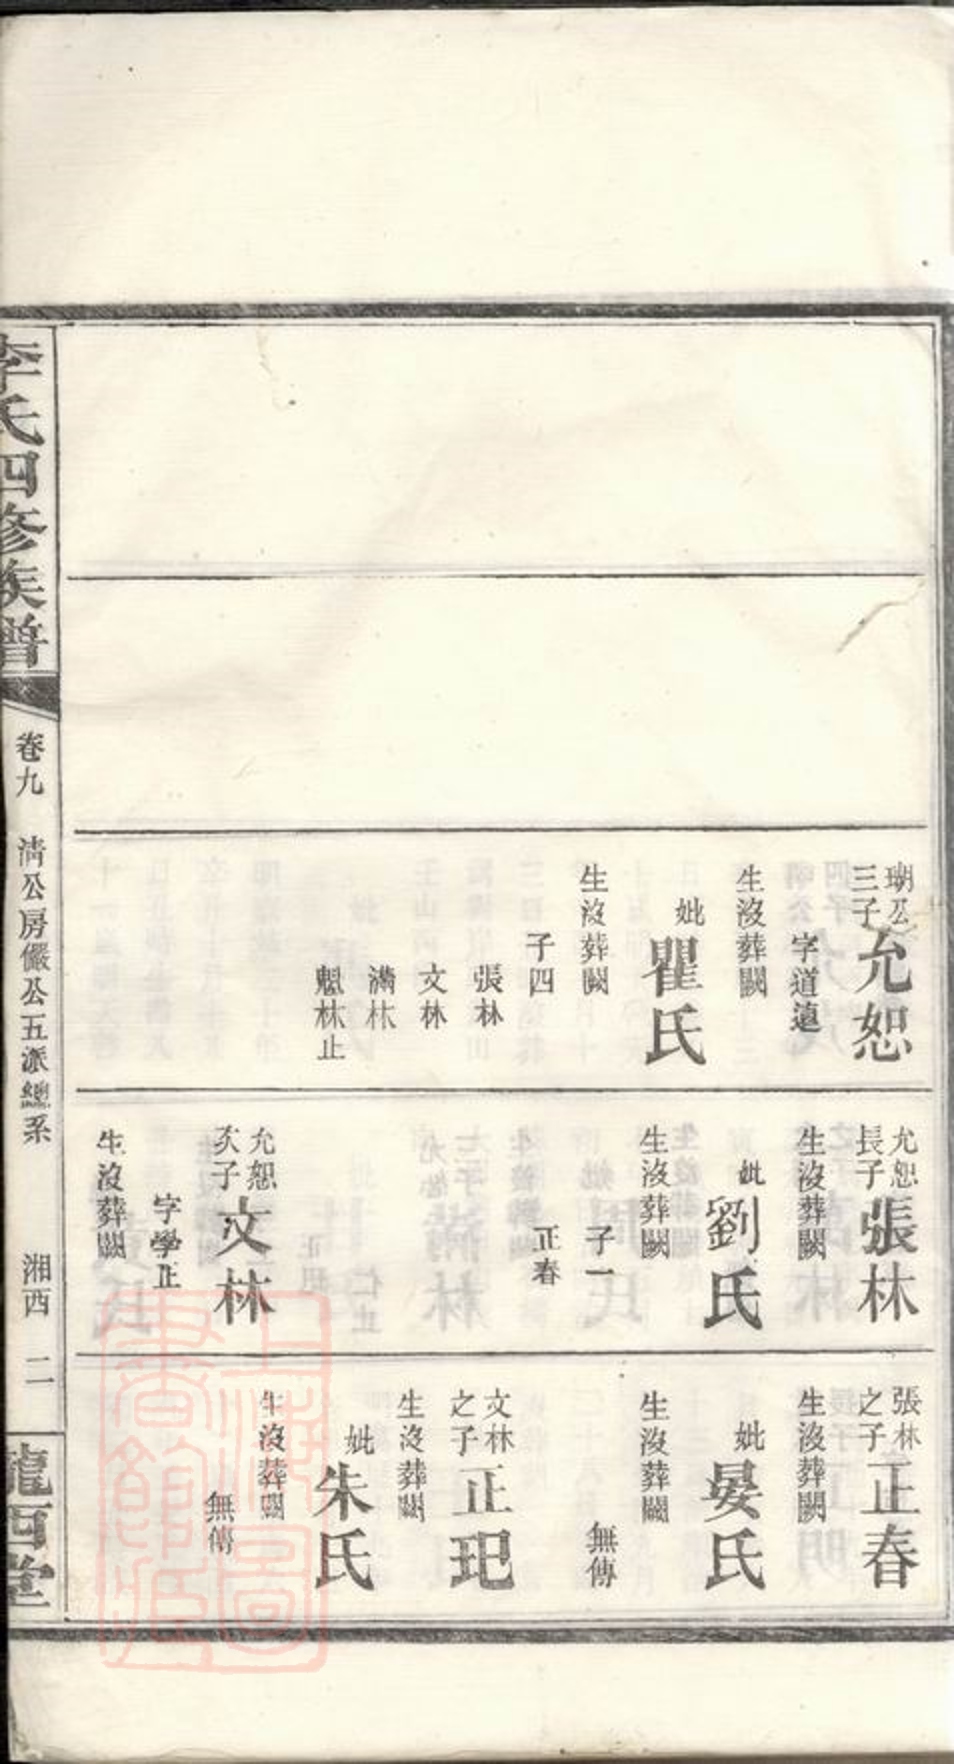 瑚公
三子
允恕
字道遠
生沒葬闕
妣
瞿氏
生沒葬闕
子四
張林
文林
滿林
魁林止
允恕
長子
張林
生沒葬闕
妣
劉氏
生沒葬闕
子一
正春
允恕
次子
文林
字學正
生沒葬闕
張林
之子
正春
生沒葬闕
妣
晏氏
生沒葬闕
無傳
文林
之子
正玘
生沒葬闕
妣
朱氏
生沒葬闕
無傳
李氏四修族譜
卷九
清公房儼公五派總系
湘西
二
隴西堂
上海圖書館藏